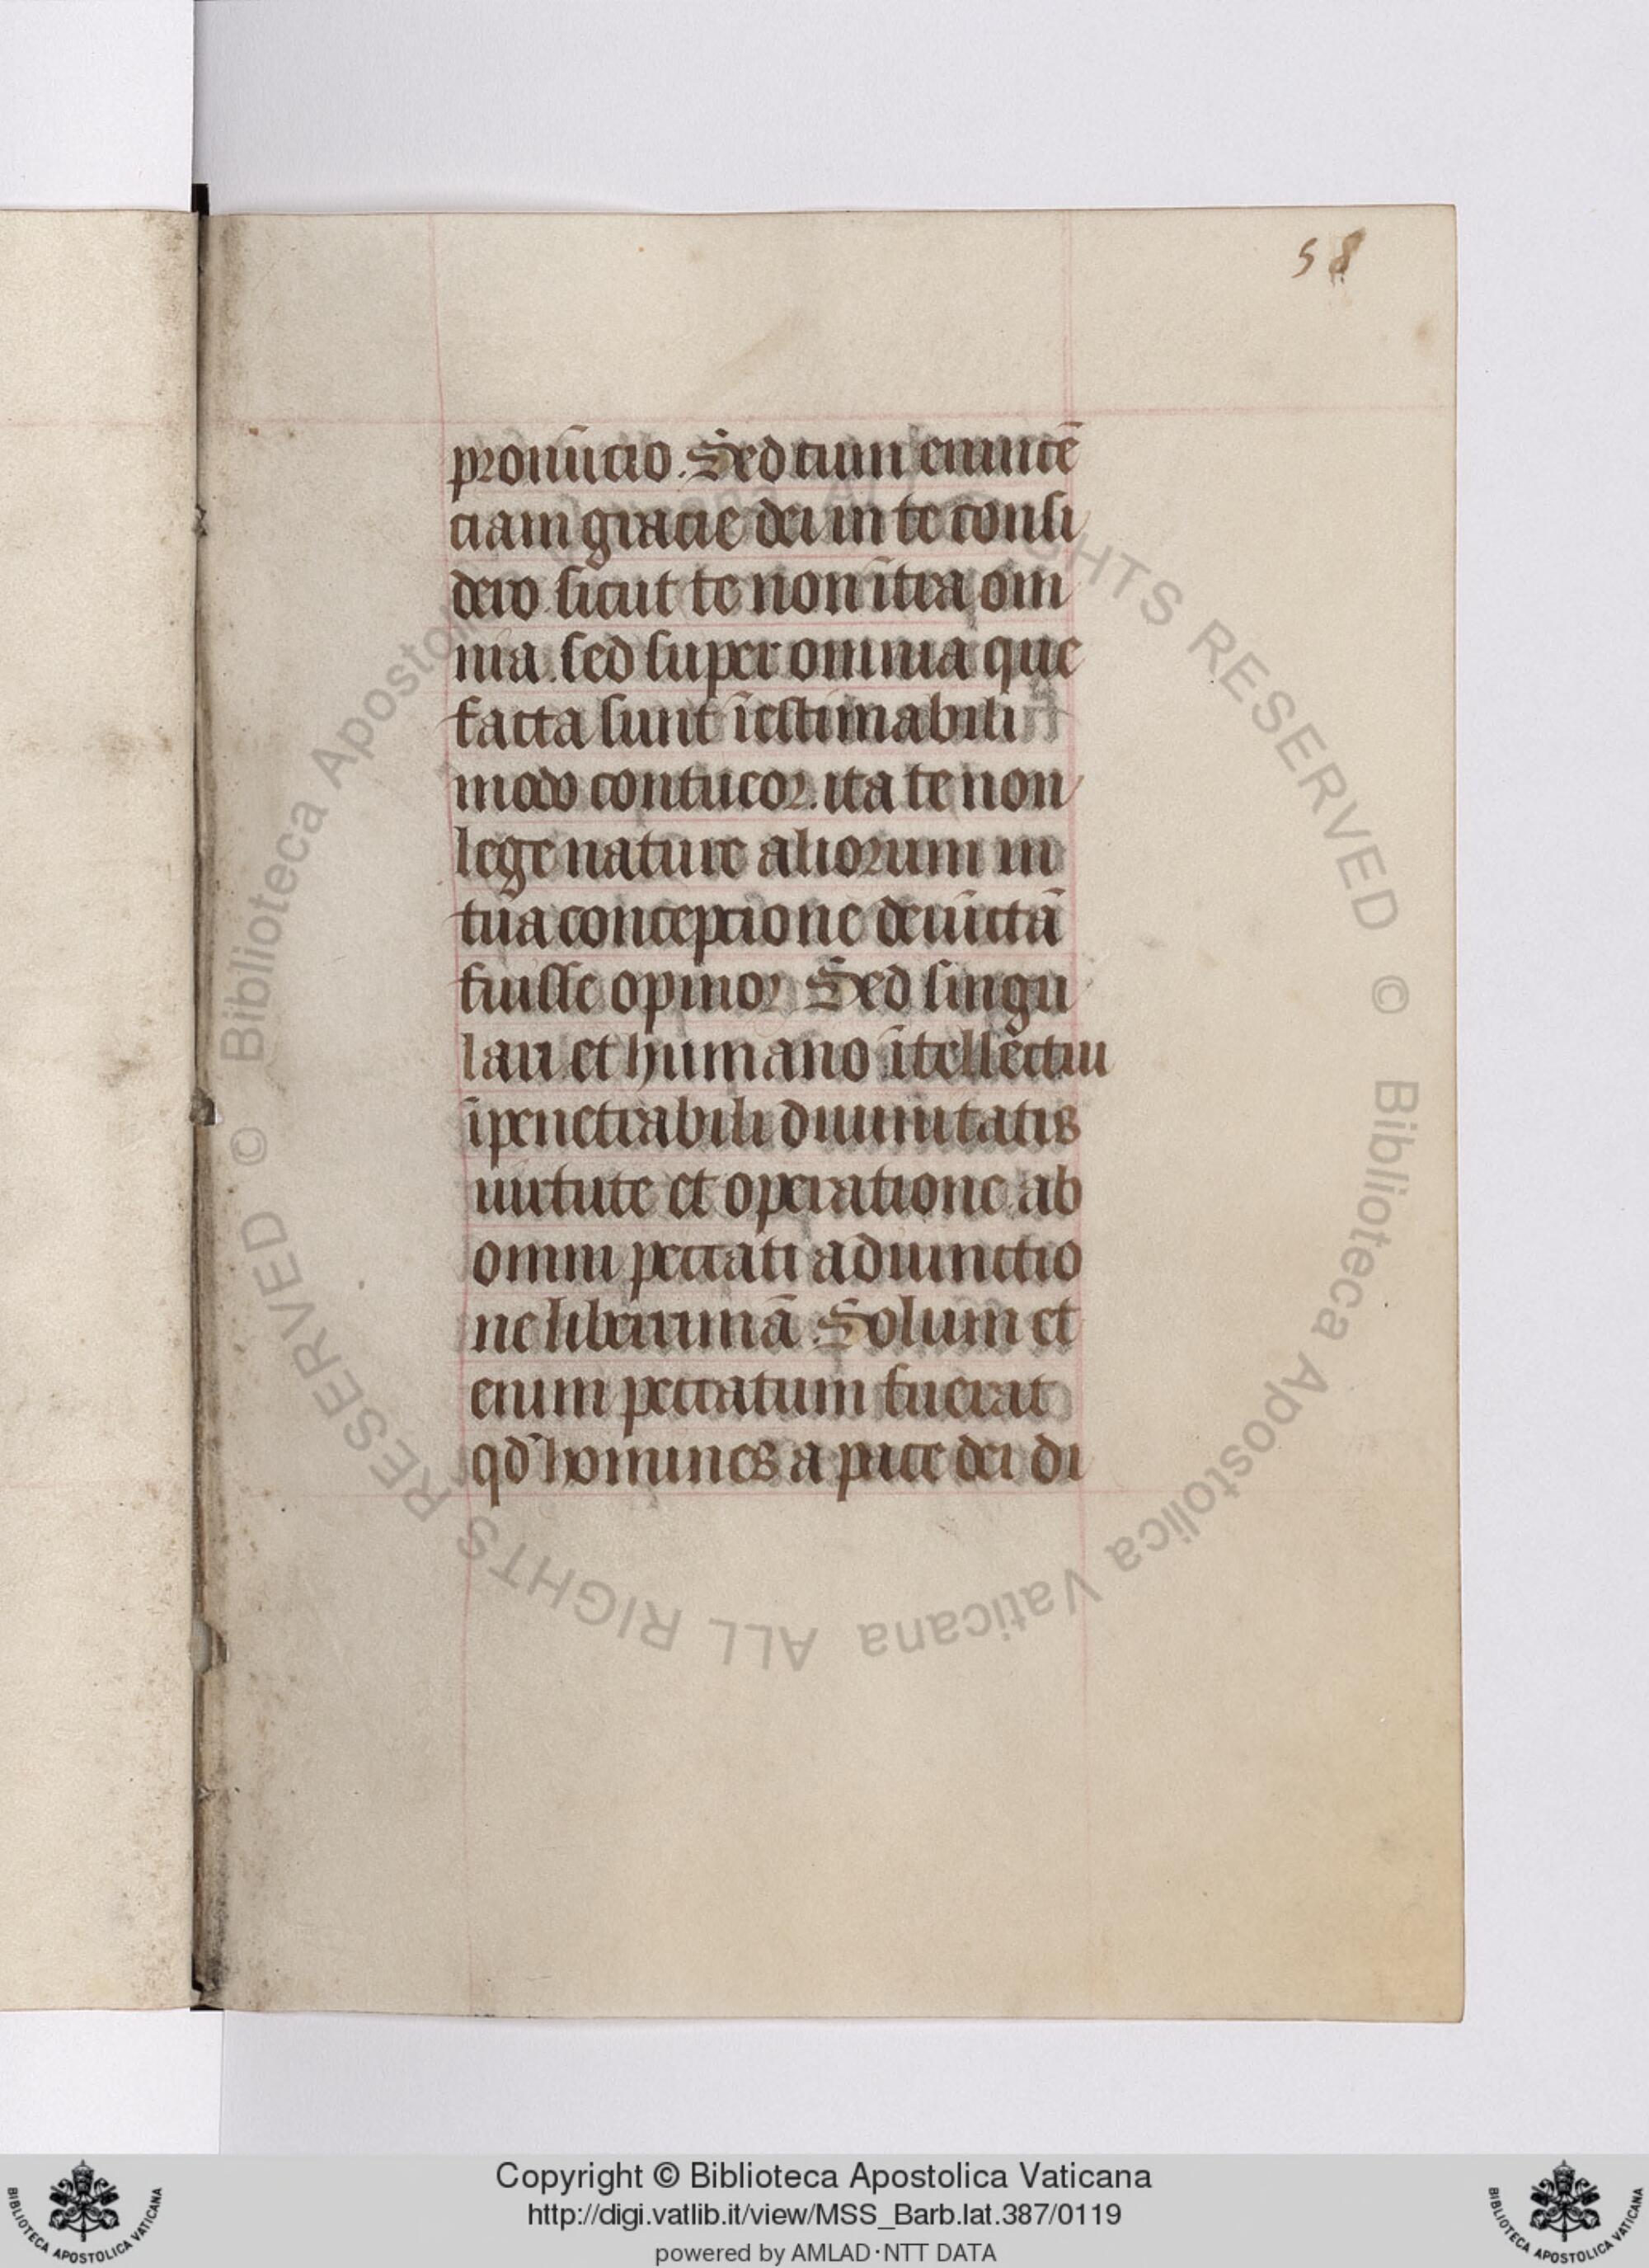 58
pronūcio. Sed cum eminētē
ciam gracie dei in te consi
dero. sicut te non ītra om
nia. sed super omnia que
facta sunt īestimabili
modo contueor. ita te non
lege nature aliorum in
tua conceptione deuictā
fuisse opinor. Sed singu
lari et humano ītellectui
īpenetrabili diuinitatis
uirtute et operatione ab
omni peccati adiunctio
ne liberrimā. Solum et
enim peccatum fuerat
qd̄ homines a pace dei di
© Biblioteca Apostolica Vaticana ALL RIGHTS RESERVED
© Biblioteca Apostolica Vaticana ALL RIGHTS RESERVED
Copyright © Biblioteca Apostolica Vaticana
http://digi.vatlib.it/view/MSS_Barb.lat.387/0119
powered by AMLAD·NTT DATA
BIBLIOTECA APOSTOLICA VATICANA
BIBLIOTECA APOSTOLICA VATICANA